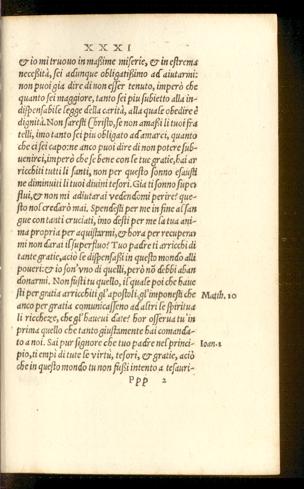 XXXI
& io mi truouo in maßime miserie, & in estrema
neceßità, sei adunque obligatißimo ad aiutarmi:
non puoi gia dire di non esser tenuto, imperò che
quanto sei maggiore, tanto sei piu subietto alla in-
dispensabile legge della carità, alla quale obedire è
dignità. Non saresti Christo, se non amaßi li tuoi fra
telli, imo tanto sei piu obligato ad amarci, quanto
che ci sei capo: ne anco puoi dire di non potere sub-
uenirci, imperò che se bene con le tue gratie, hai ar
ricchiti tutti li santi, non per questo sonno esausti
ne diminuiti li tuoi diuini tesori. Gia ti sonno super
flui, & non mi adiutarai vedendomi perire? que-
sto nol crederò mai. Spendesti per me in fine al san
gue con tanti cruciati, imo desti per me la tua ani-
ma propria per aquistarmi, & hora per recuperar
mi non darai il superfluo? Tuo padre ti arricchi di
tante gratie, aciò le dispensaßi in questo mondo alli
poueri: & io son'vno di quelli, però nõ debbi aban
donarmi. Non fusti tu quello, il quale poi che haue
sti per gratia arricchiti gl'apostoli, gl'imponesti che
anco per gratia comunicasseno ad altri le spiritua
li riccheze, che gl'haueui date? hor osserua tu in
prima quello che tanto giustamente hai comanda-
to a noi. Sai pur signore che tuo padre nel princi-
pio, ti empì di tute le virtù, tesori, & gratie, aciò
che in questo mondo tu non fußi intento a tesauri-
Matth. 10
Ioan. 1
Ppp 2